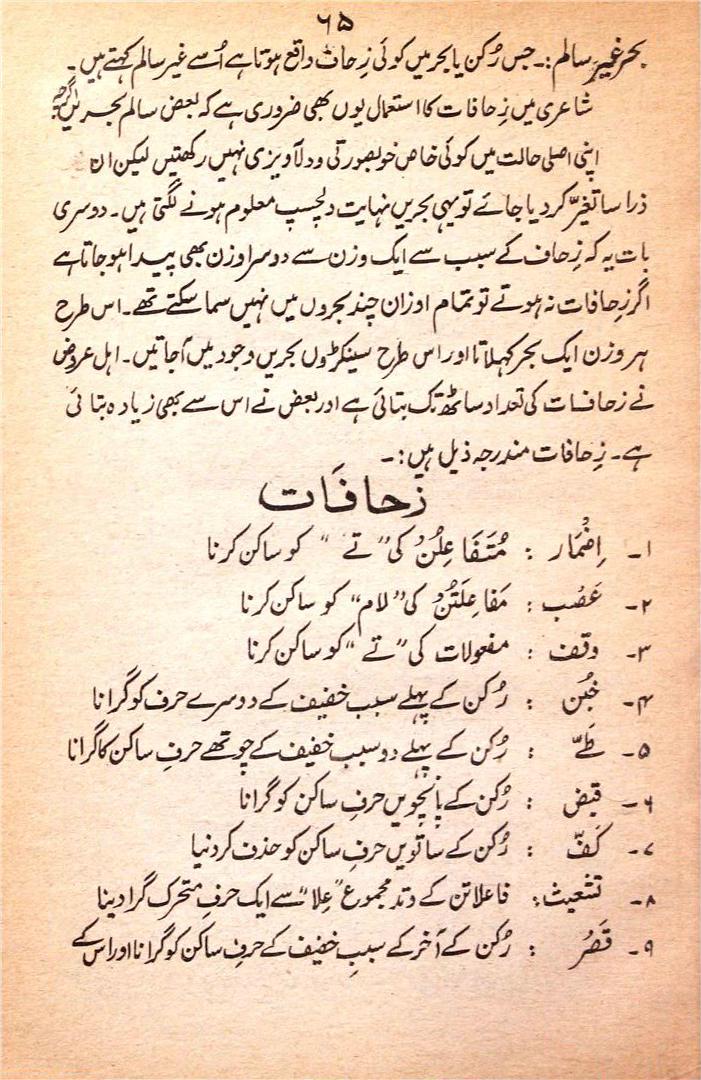 ۶۵
بحر غیر سالم :۔ جس رُکن یا بحر میں کوئی زِحاف واقع ہوتا ہے اُسے غیر سالم کہتے ہیں۔
شاعری میں زِحافات کا استعمال یوں بھی ضروری ہے کہ بعض سالم بحریں اگرچہ
اپنی اصلی حالت میں کوئی خاص خوبصورتی و دلآویزی نہیں رکھتیں لیکن ان
ذرا سا تغیّر کر دیا جائے تو یہی بحریں نہایت دلچسپ معلوم ہونے لگتی ہیں۔ دوسری
بات یہ کہ زِحاف کے سبب سے ایک وزن سے دوسرا وزن بھی پیدا ہو جاتا ہے
اگر زِحافات نہ ہوتے تو تمام اوزان چند بحروں میں نہیں سما سکتے تھے۔ اس طرح
ہر وزن ایک بحر کہلاتا اور اس طرح سینکڑوں بحریں وجود میں آجاتیں۔ اہل عروض
نے زحافات کی تعداد ساٹھ تک بتائی ہے اور بعض نے اس سے بھی زیادہ بتائی
ہے۔ زِحافات مندرجہ ذیل ہیں :۔
زحافَات
۱۔ اِضْمار : مُتَفَاعِلُنْ کی "تے" کو ساکن کرنا
۲۔ عَصْب : مَفاعِلَتُنْ کی "لام" کو ساکن کرنا
۳۔ وقف : مفعولات کی "تے" کو ساکن کرنا
۴۔ خَبْن : رُکن کے پہلے سبب خفیف کے دوسرے حرف کو گرانا
۵۔ طَےّ : رُکن کے پہلے دو سبب خفیف کے چوتھے حرفِ ساکن کا گرانا
۶۔ قبض : رُکن کے پانچویں حرفِ ساکن کو گرانا
۷۔ کَفّ : رُکن کے ساتویں حرفِ ساکن کو حذف کر دنیا
۸۔ تشعیث : فاعلاتن کے وتد مجموع "عِلا" سے ایک حرفِ متحرک گرا دینا
۹۔ قَصْر : رُکن کے آخر کے سببِ خفیف کے حرفِ ساکن کو گرانا اور اس کے